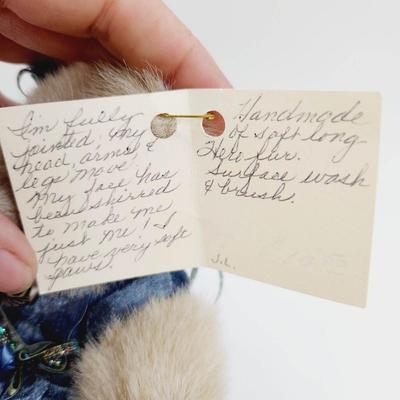 I'm fully
jointed, my
head, arms &
legs move.
My face has
been skirred
to make me
just me! I
have very soft
paws.
Handmade
of soft long
Hero fur.
Surface wash
& brush.
J.L.